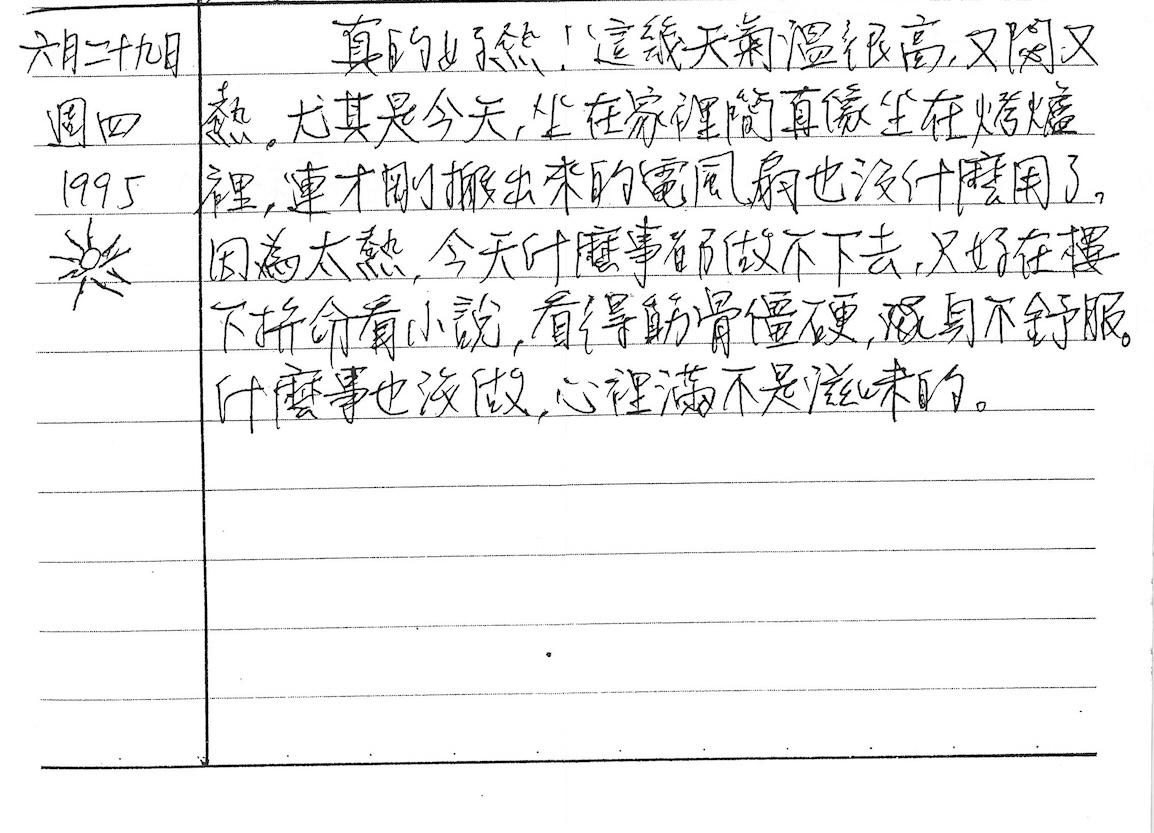 六月二十九日
週四
1995
真的好熱！這幾天氣溫很高，又悶又
熱。尤其是今天，坐在家裡簡直像坐在烤爐
裡，連才剛搬出來的電風扇也沒什麼用了。
因為太熱，今天什麼事都做不下去，只好在樓
下拚命看小說，看得筋骨僵硬，渾身不舒服。
什麼事也沒做，心裡滿不是滋味的。